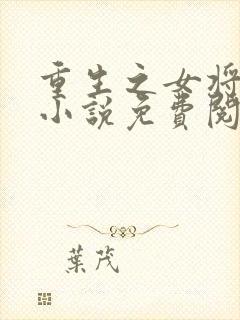 重生之女将
小說免費閱
葉茂